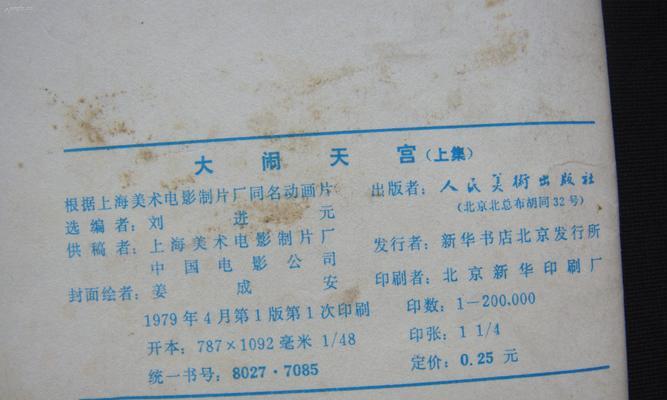 大闹天宫(上集)
根据上海美术电影制片厂同名动画片
选编者：刘进元
供稿者：上海美术电影制片厂
中国电影公司
封面绘者：姜成安
1979年4月第1版第1次印刷
开本：787×1092毫米 1/48
统一书号：8027·7085
出版者：人民美術出版社
(北京北总布胡同32号)
发行者：新华书店北京发行所
印刷者：北京新华印刷厂
印数：1—200,000
印张：1 1/4
定价：0.25元